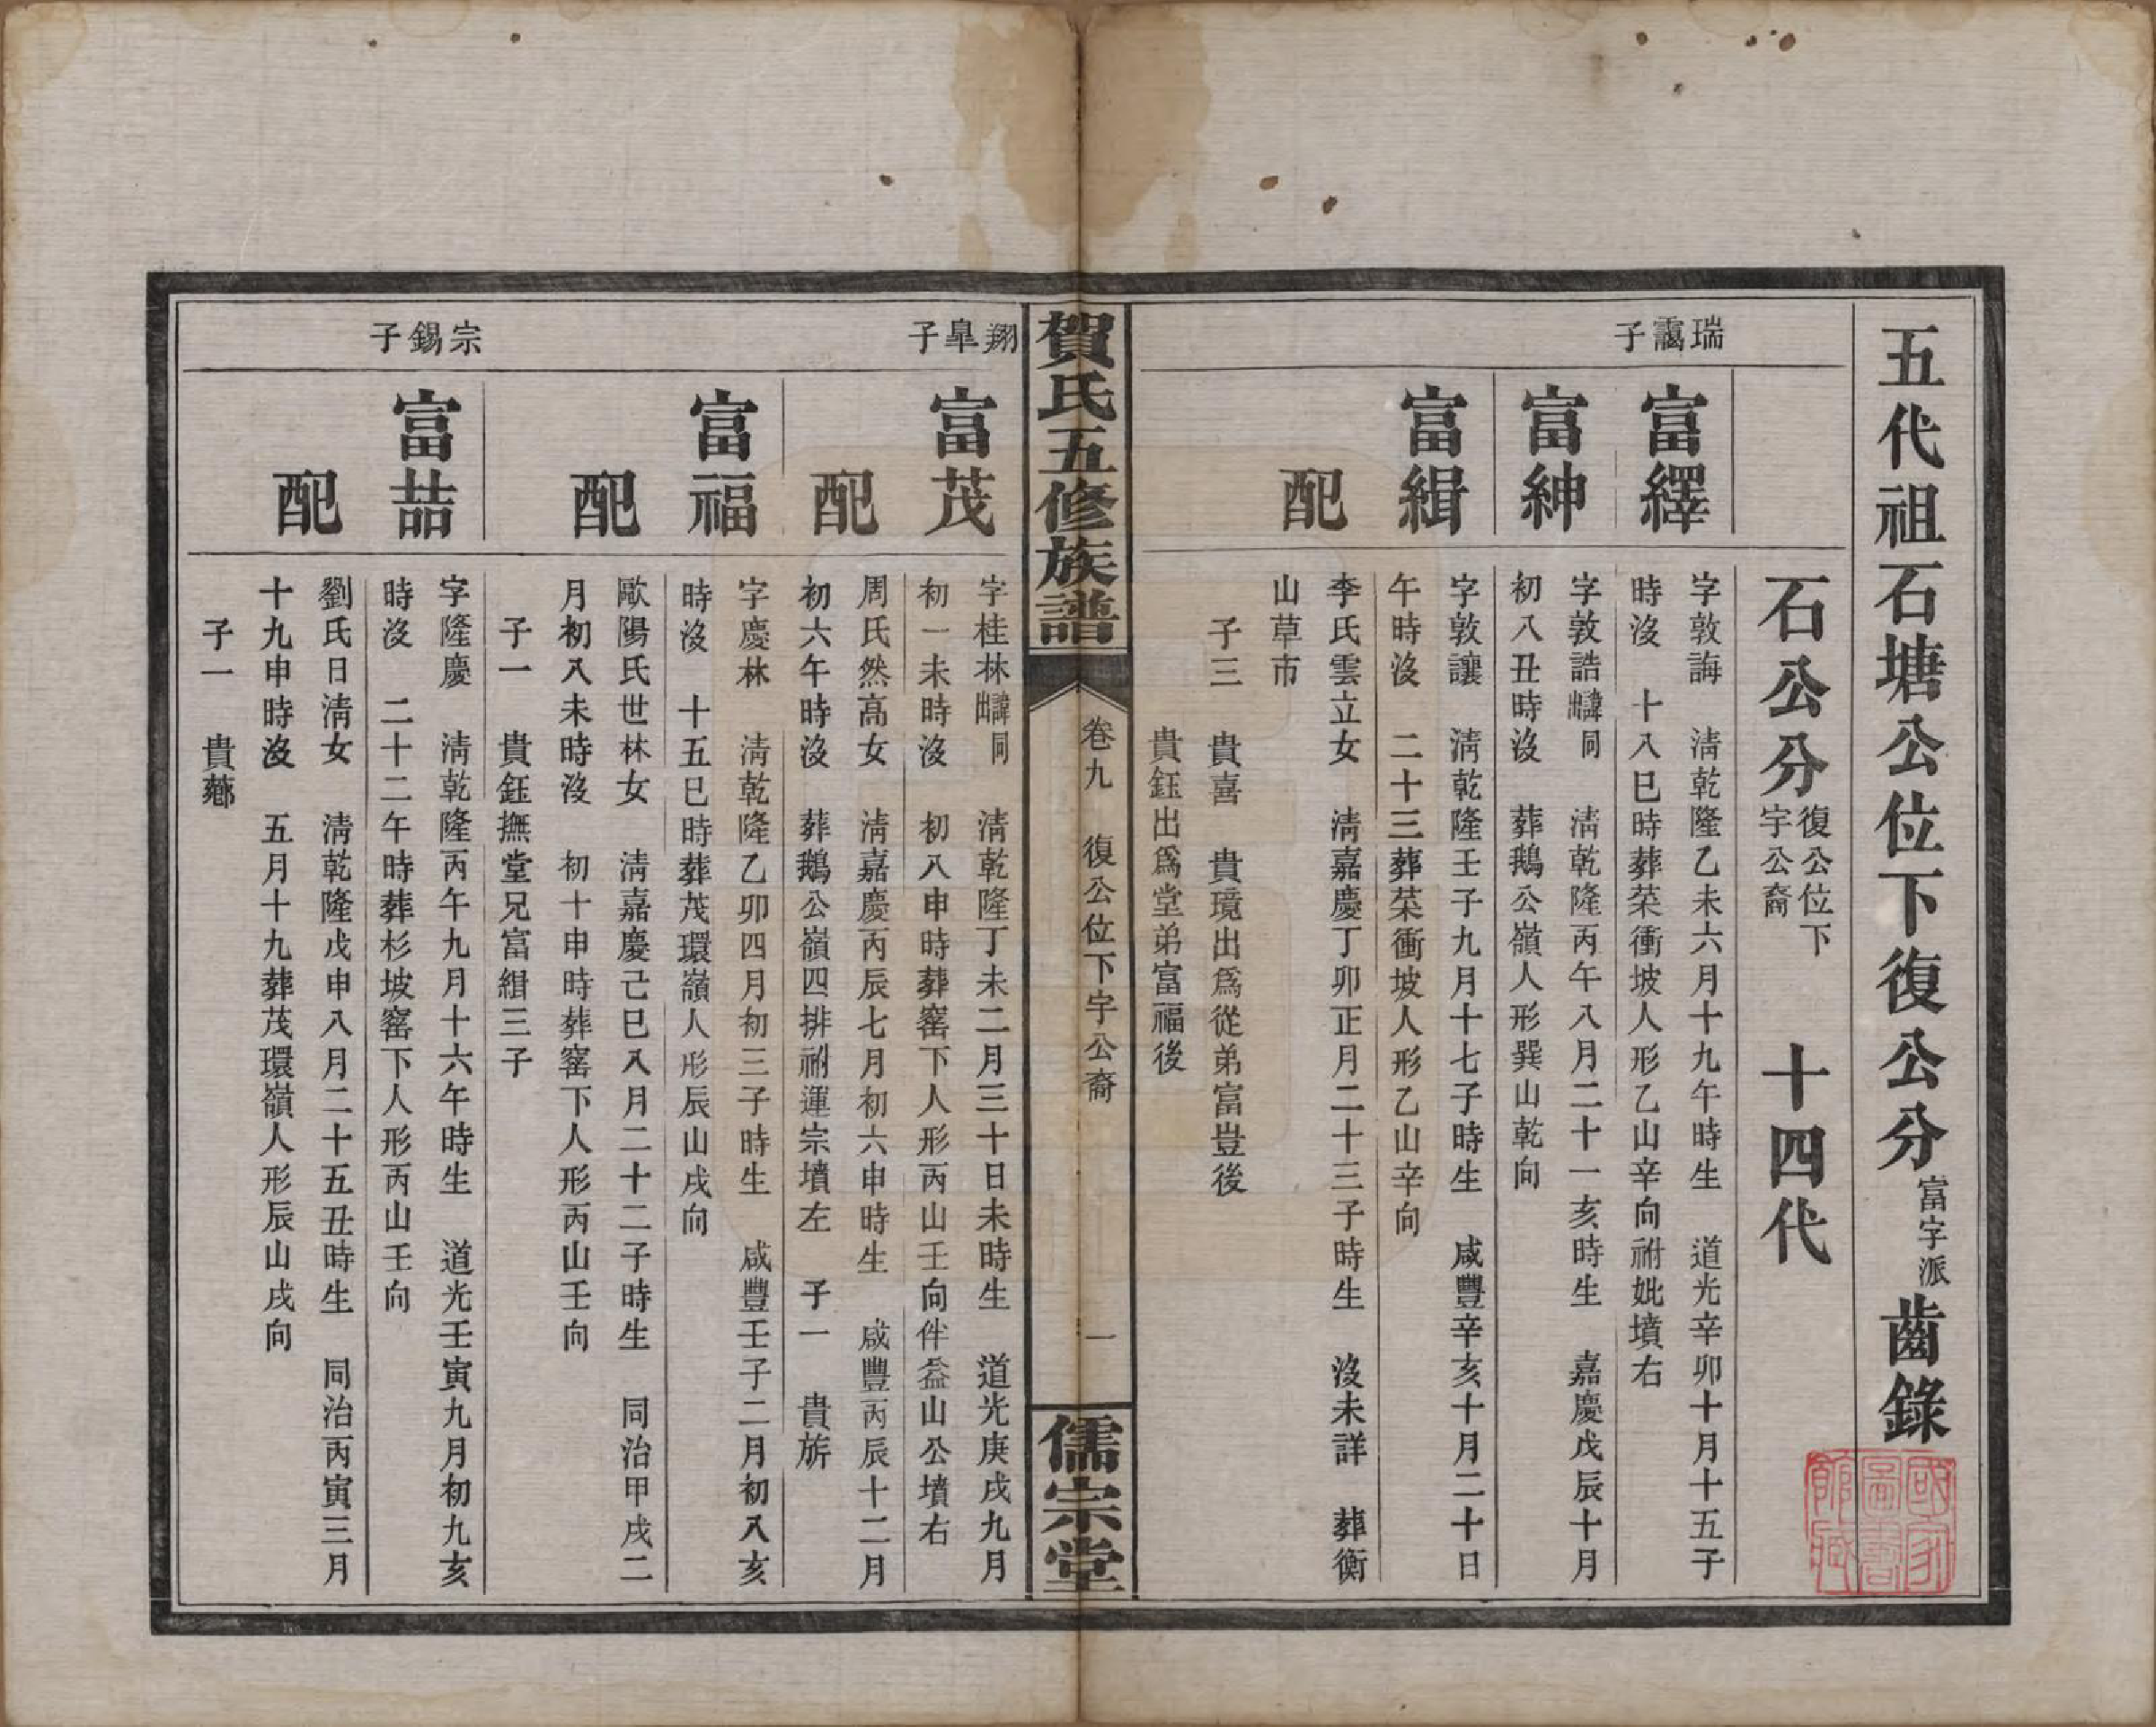 五代祖石塘公位下復公分富字派齒錄
石公分復公位下宇公裔 十四代
瑞靄子
富繹
字敦誨 淸乾隆乙未六月十九午時生 道光辛卯十月十五子
時沒 十八巳時葬菜衝坡人形乙山辛向祔妣墳右
富紳
字敦誥出諱同 淸乾隆丙午八月二十一亥時生 嘉慶戊辰十月
初八丑時沒 葬鵝公嶺人形巽山乾向
富緝
字敦讓 淸乾隆壬子九月十七子時生 咸豐辛亥十月二十日
午時沒 二十三葬菜衝坡人形乙山辛向
配
李氏雲立女 淸嘉慶丁卯正月二十三子時生 沒未詳 葬衡
山草市
子三 貴喜 貴璄出爲從弟富豈後
貴鈺出爲堂弟富福後
賀氏五修族譜
卷九 復公位下宇公裔
一
儒宗堂
翔臯子
富茂
字桂林出諱同 淸乾隆丁未二月三十日未時生 道光庚戌九月
初一未時沒 初八申時葬窰下人形丙山壬向伴益山公墳右
配
周氏然高女 淸嘉慶丙辰七月初六申時生 咸豐丙辰十二月
初六午時沒 葬鵝公嶺四排祔運宗墳左 子一 貴旂
富福
字慶林 淸乾隆乙卯四月初三子時生 咸豐壬子二月初八亥
時沒 十五巳時葬茂環嶺人形辰山戌向
配
歐陽氏世林女 淸嘉慶己巳八月二十二子時生 同治甲戌二
月初八未時沒 初十申時葬窰下人形丙山壬向
子一 貴鈺撫堂兄富緝三子
宗錫子
富喆
字隆慶 淸乾隆丙午九月十六午時生 道光壬寅九月初九亥
時沒 二十二午時葬杉坡窰下人形丙山壬向
配
劉氏日淸女 淸乾隆戊申八月二十五丑時生 同治丙寅三月
十九申時沒 五月十九葬茂環嶺人形辰山戌向
子一 貴薌
國家圖書館藏